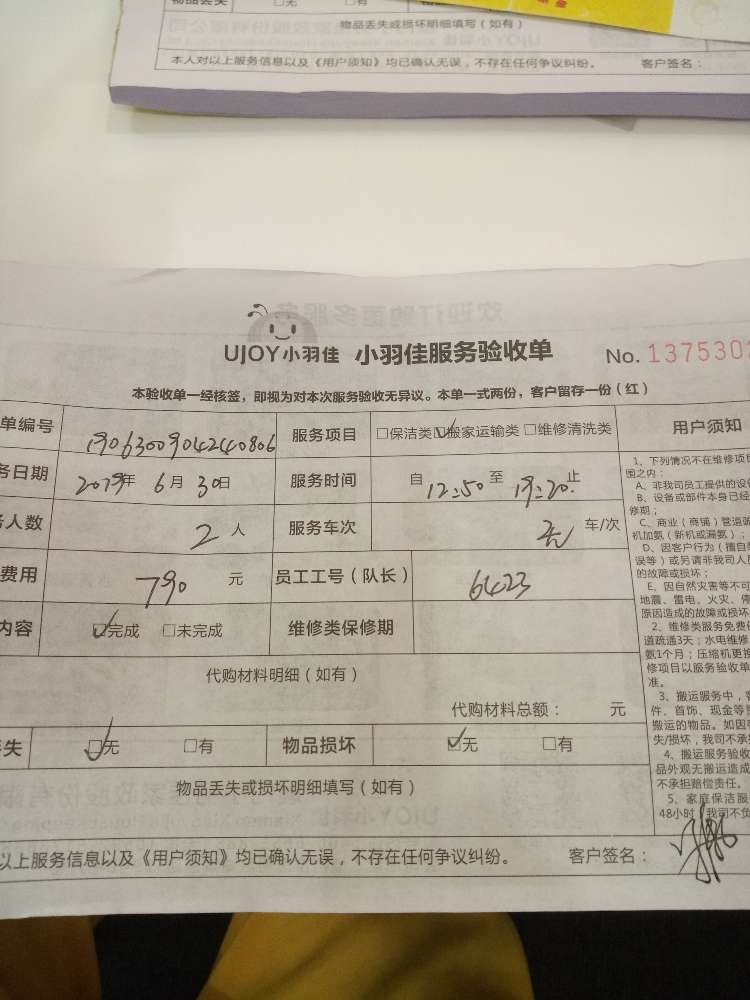 物品丢失 □无 □有
物品丢失或损坏明细填写（如有）
本人对以上服务信息以及《用户须知》均已确认无误，不存在任何争议纠纷。 客户签名：
UJOY小羽佳 小羽佳服务验收单 No. 1375302
本验收单一经核签，即视为对本次服务验收无异议。本单一式两份，客户留存一份（红）
单编号 19063009042440806 服务项目 □保洁类 ☑搬家运输类 □维修清洗类 用户须知
务日期 2019年 6月 30日 服务时间 自 12:50 至 19:20 止
人数 2 人 服务车次 车/次
费用 790 元 员工工号（队长） 6423
内容 ☑完成 □未完成 维修类保修期
代购材料明细（如有）
代购材料总额： 元
失 ☑无 □有 物品损坏 ☑无 □有
物品丢失或损坏明细填写（如有）
以上服务信息以及《用户须知》均已确认无误，不存在任何争议纠纷。 客户签名：
1、下列情况不在维修项目
围之内：
A、非我司员工提供的设备
B、设备或部件本身已经
修期；
C、商业（商铺）管道疏
机加氨（新机或漏氨）；
D、因客户行为（擅自
误等）或另请非我司人员
的故障或损坏；
E、因自然灾害等不可
地震、雷电、火灾、停
原因造成的故障或损坏
2、维修类服务免费保
道疏通3天；水电维修
氨1个月；压缩机更换
修项目以服务验收单
准。
3、搬运服务中，客
件、首饰、现金等贵
搬运的物品。如因客
失/损坏，我司不承担
4、搬运服务验收
品外观无搬运造成
不承担赔偿责任。
5、家庭保洁服
48小时，我司不负